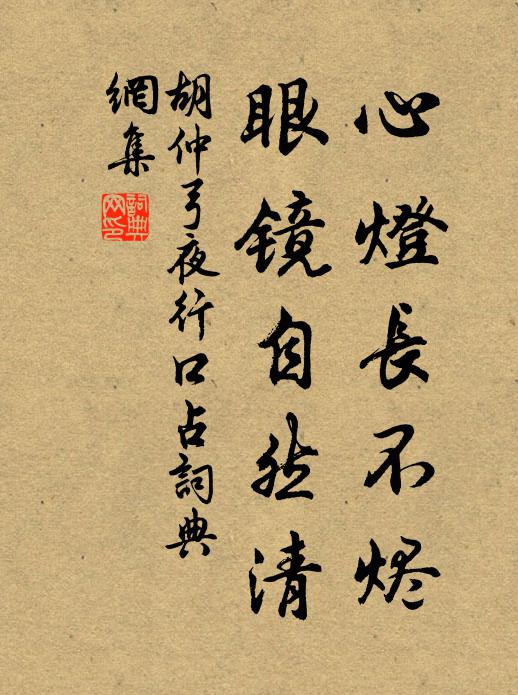 心燈長不烬
眼镜自然清
胡仲弓夜行口占詞典
網集
詞典
网印